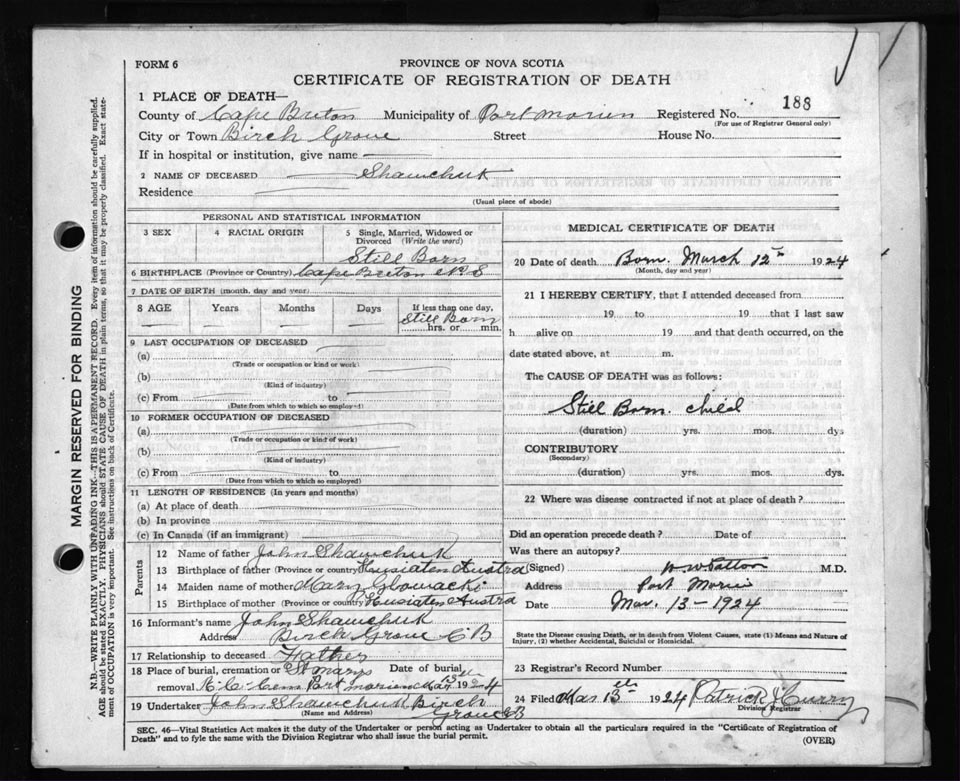 FORM 6
PROVINCE OF NOVA SCOTIA
CERTIFICATE OF REGISTRATION OF DEATH
1 PLACE OF DEATH—
County of Cape Breton Municipality of Port Morien Registered No. 188
(For use of Registrar General only)
City or Town Birch Grove Street House No.
If in hospital or institution, give name
2 NAME OF DECEASED Shawchuk
Residence
(Usual place of abode)
PERSONAL AND STATISTICAL INFORMATION
3 SEX 4 RACIAL ORIGIN 5 Single, Married, Widowed or Divorced (Write the word)
Still Born
6 BIRTHPLACE (Province or Country) Cape Breton N.S
7 DATE OF BIRTH (month, day and year)
8 AGE Years Months Days If less than one day,
Still Born
hrs. or min.
9 LAST OCCUPATION OF DECEASED
(a)
(Trade or occupation or kind or work)
(b)
(Kind of industry)
(c) From to
(Date from which to which so employed)
10 FORMER OCCUPATION OF DECEASED
(a)
(Trade or occupation or kind of work)
(b)
(Kind of industry)
(c) From to
(Date from which to which so employed)
11 LENGTH OF RESIDENCE (In years and months)
(a) At place of death
(b) In province
(c) In Canada (if an immigrant)
Parents
12 Name of father John Shawchuk
13 Birthplace of father (Province or country) Husiaten Austra
14 Maiden name of mother Mary Glowacki
15 Birthplace of mother (Province or country) Husiaten Austra
16 Informant's name John Shawchuk
Address Birch Grove C B
17 Relationship to deceased Father
18 Place of burial, cremation or St marys Date of burial,
removal R. C. Cem Port Morien Mar. 13th 1924
19 Undertaker John Shawchuk Birch
(Name and Address) Grove CB
MEDICAL CERTIFICATE OF DEATH
20 Date of death Born. March 12th 1924
(Month, day and year)
21 I HEREBY CERTIFY, that I attended deceased from
19 to 19 that I last saw
h alive on 19 and that death occurred, on the
date stated above, at m.
The CAUSE OF DEATH was as follows:
Still Born. child
(duration) yrs. mos. dys
CONTRIBUTORY
(Secondary)
(duration) yrs. mos. dys.
22 Where was disease contracted if not at place of death?
Did an operation precede death? Date of
Was there an autopsy?
(Signed) W W Patton M.D.
Address Port Morien
Date Mar. 13 - 1924
State the Disease causing Death, or in death from Violent Causes, state (1) Means and Nature of
Injury, (2) whether Accidental, Suicidal or Homicidal.
23 Registrar's Record Number
24 Filed Mar 13th 1924 Patrick J Curry
Division Registrar
SEC. 46—Vital Statistics Act makes it the duty of the Undertaker or person acting as Undertaker to obtain all the particulars required in the "Certificate of Registration of
Death" and to fyle the same with the Division Registrar who shall issue the burial permit.
(OVER)
MARGIN RESERVED FOR BINDING
N.B.—WRITE PLAINLY WITH UNFADING INK—THIS IS A PERMANENT RECORD. Every item of information should be carefully supplied.
AGE should be stated EXACTLY. PHYSICIANS should STATE CAUSE OF DEATH in plain terms, so that it may be properly classified. Exact state-
ment of OCCUPATION is very important. See instructions on back of Certificate.